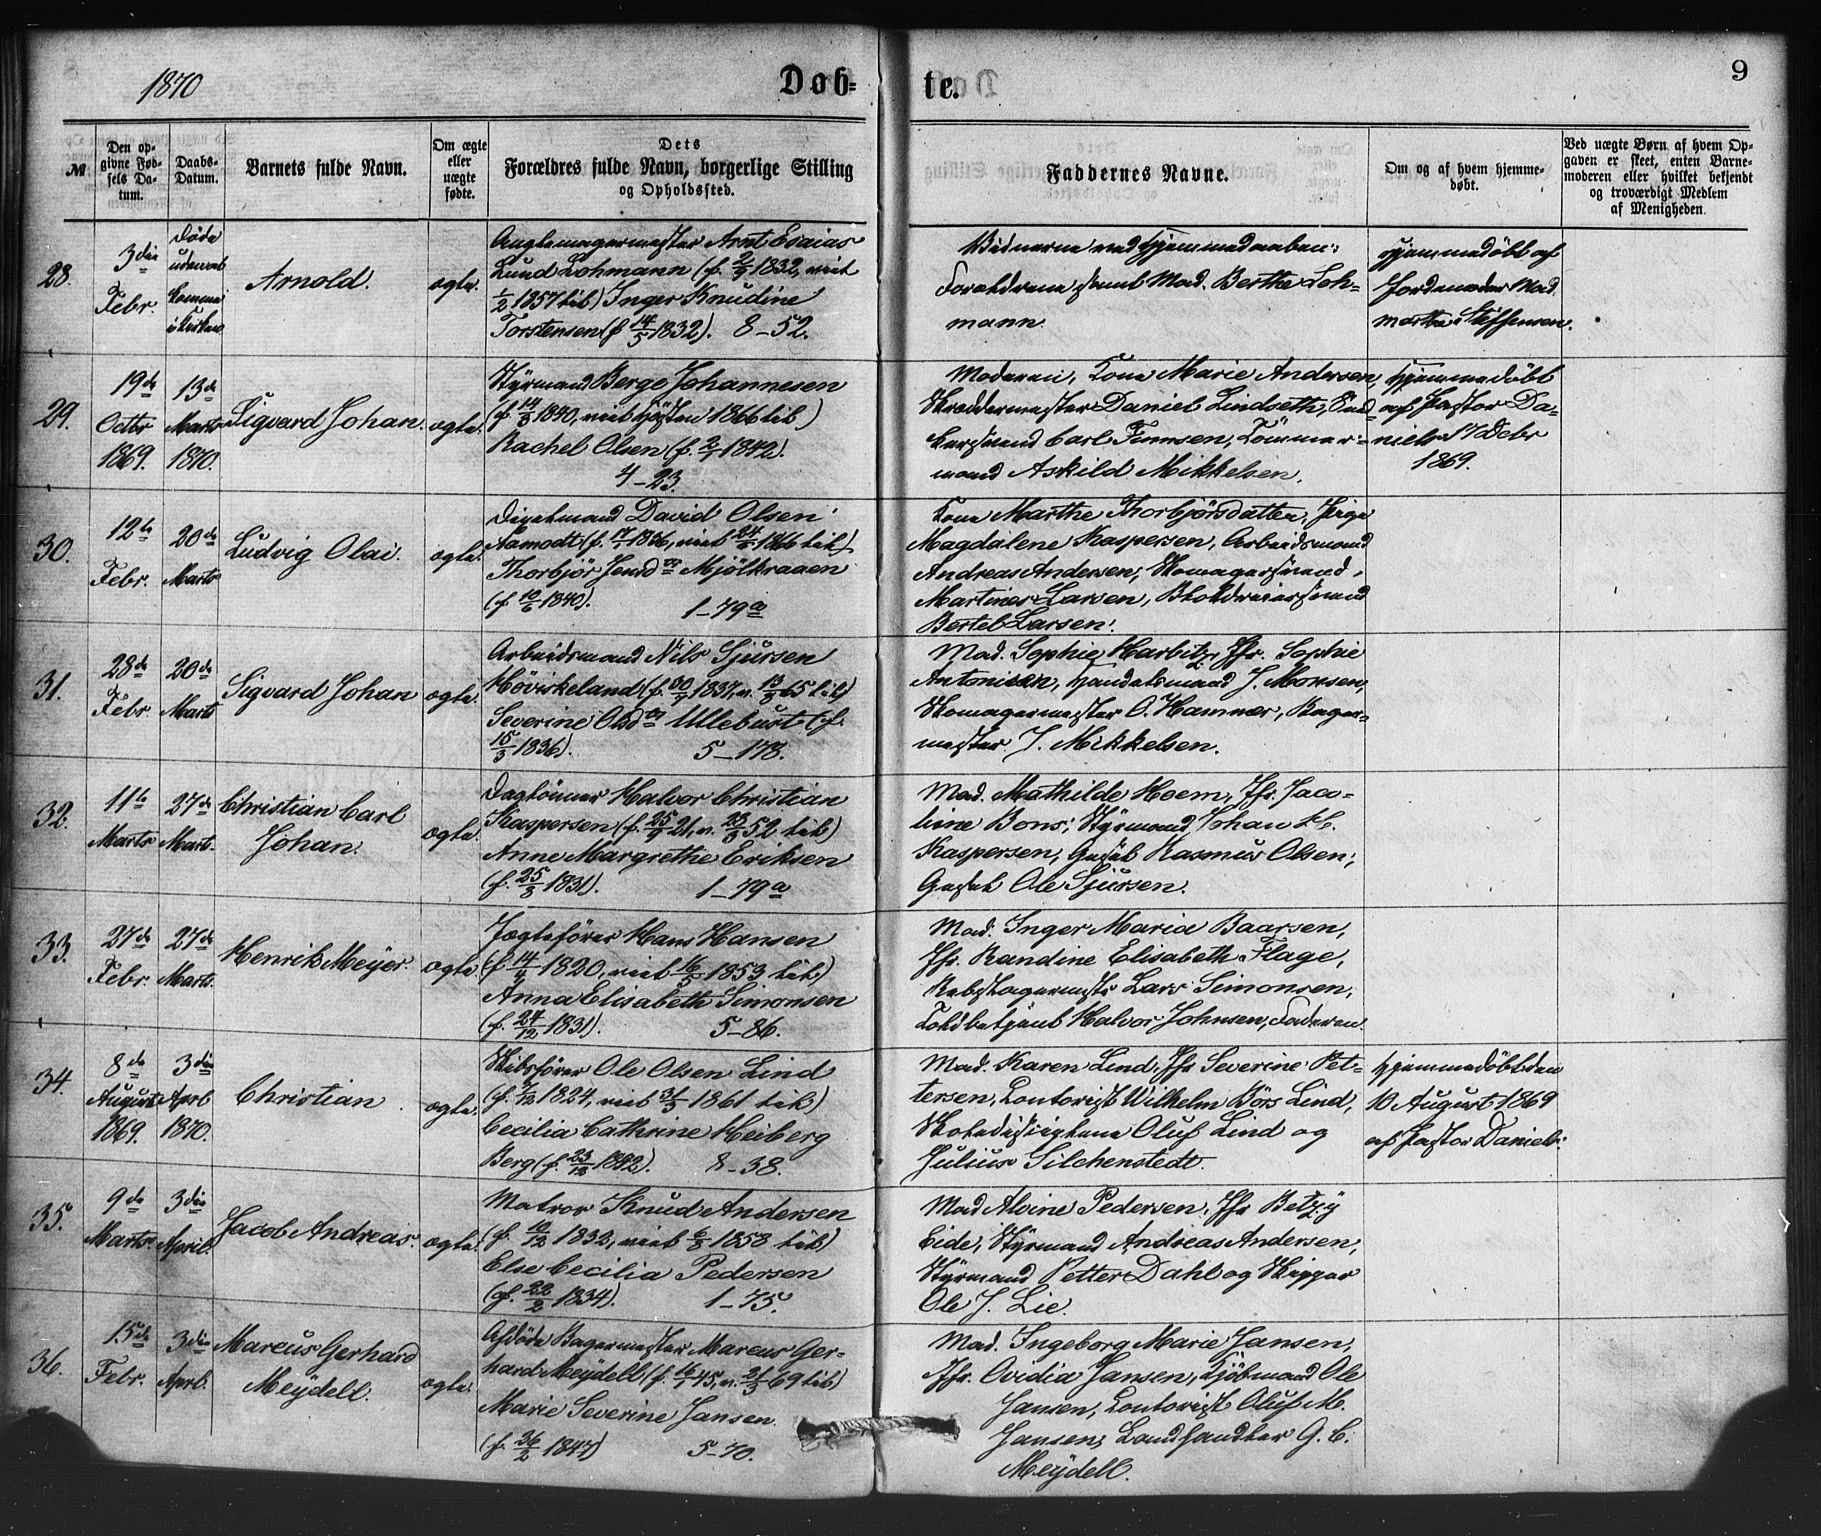 1870
Døb-
te.
9
№
Den op-
givne Fød-
sels Da-
tum.
Daabs-
Datum.
Barnets fulde Navn.
Om ægte
eller
uægte
fødte.
Dets
Forældres fulde Navn, borgerlige Stilling
og Opholdssted.
Faddernes Navne.
Om og af hvem hjemme-
døbt.
Ved uægte Børn af hvem Op-
gaven er skeet, enten Barne-
moderen eller hvilket bekjendt
og troværdigt Medlem
af Menigheden.
28.
3die
Febr.
Døde
uden at
komme
i Kirken
Arnold.
ægte.
Arnt Esaias
Lund Lohmann (f. 2/9 1832, viet
1/2 1857 til) Inger Knudine
Torstensen (f 14/5 1832). 8-52.
Vidnerne ved Hjemmedaaben:
Forældrene samt Mad. Berthe Loh-
mann.
Hjemmedöbt af
Jordemoder Mad.
Martha Steffensen.
29.
19de
Octbr
1869.
13de
Marts
1870.
Sigvard Johan.
ægte.
Styrmand Berge Johannesen
(f. 14/3 1840, viet Hösten 1866 til)
Rachel Olsen (f. 2/7 1842).
4-23.
Moderen, Kone Marie Andersen,
Skræddermester Daniel Lindseth,
Carl Finnsen, Tömmer-
mand Askild Mikkelsen.
Hjemmedöbt
af Pastor Da-
niels 17 Debr
1869.
30.
12te
Febr.
20de
Marts
Ludvig Olai.
ægte.
David Olsen
Aamodt (f. 17/7 1836, viet 24/5 1866 til)
Thorbjör Jensdtr Mjölkraaen
(f. 10/5 1840). 1-79a
Kone Marthe Thorbjörsdatter, Pige
Magdalene Kaspersen, Arbeidsmand
Andreas Andersen, Skomagersvend
Martines Larsen, Blokdreiersvend
Bertel Larsen.
31.
28de
Febr.
20de
Marts
Sigvard Johan
ægte.
Arbeidsmand Nils Sjursen
Hövirkeland (f. 30/7 1837, v. 13/8 65 til)
Severine Olsdtr Ullebust (f.
15/3 1836). 5-178.
Mad. Sophie Harbitz, Jfr. Sophie
Antonisen, Handelsmand J. Monsen,
Skomagermester O. Hammer, Bager-
mester J. Mikkelsen.
32.
11te
Marts
27de
Marts.
Christian Carl
Johan.
ægte.
Daglönner Halvor Christian
Kaspersen (f. 25/9 21, v. 23/3 52 til)
Anne Margrethe Eriksen
(f. 25/3 1831). 1-79a
Mad. Mathilde Hoem, Jfr. Jaco-
bine Bons, Styrmand Johan
Kaspersen, Gesel Rasmus Olsen,
Gesel Ole Sjursen.
33.
27de
Febr.
27de
Marts.
Henrik Meyer.
ægte.
Jægtefører Hans Hansen
(f 14/4 1820, viet 16/5 1853 til)
Anna Elisabeth Simonsen
(f. 24/12 1831). 5-86.
Mad. Inger Maria Baarsen,
Jfr. Randine Elisabeth Flage,
Rebslagermester Lars Simonsen,
Toldbetjent Halvor Johnsen, Faderen.
34.
8de
August
1869.
3die
April
1870.
Christian
ægte.
Skibsfører Ole Olsen Lind
(f. 5/12 1824, viet 31/3 1861 til)
Cecilia Cathrine Heiberg
Berg (f. 23/12 1842). 8-38.
Mad. Karen Lind, Jfr Severine Pet-
tersen, Contorist Wilhelm Börs Lind,
Skoledisciplene Oluf Lind og
Julius Silchenstedt.
Hjemmedöbt den
10 August 1869
af Pastor Daniels.
35.
9de
Marts.
3die
April.
Jacob Andreas.
ægte.
Matros Knud Andersen
(f. 10/12 1832, viet 6/8 1858 til)
Else Cecilia Pedersen
(f. 22/2 1834). 1-75.
Mad Alvine Pedersen, Jfr Betzy
Eide, Styrmand Andreas Andersen,
Styrmand Petter Dahl og Skipper
Ole J. Lie.
36.
15de
Febr.
3die
April.
Marcus Gerhard
Meydell.
ægte.
Afdöde Bagermester Marcus Ger-
hard Meydell (f. 16/1 45, v. 21/3 69 til)
Marie Severine Jansen
(f. 26/2 1847) 5-70.
Mad. Ingeborg Marie Jansen,
Jfr. Ovidia Jansen, Kjöbmand Ole
Jansen, Contorist Oluf M.
Jansen, Landhandler G. C.
Meydell.